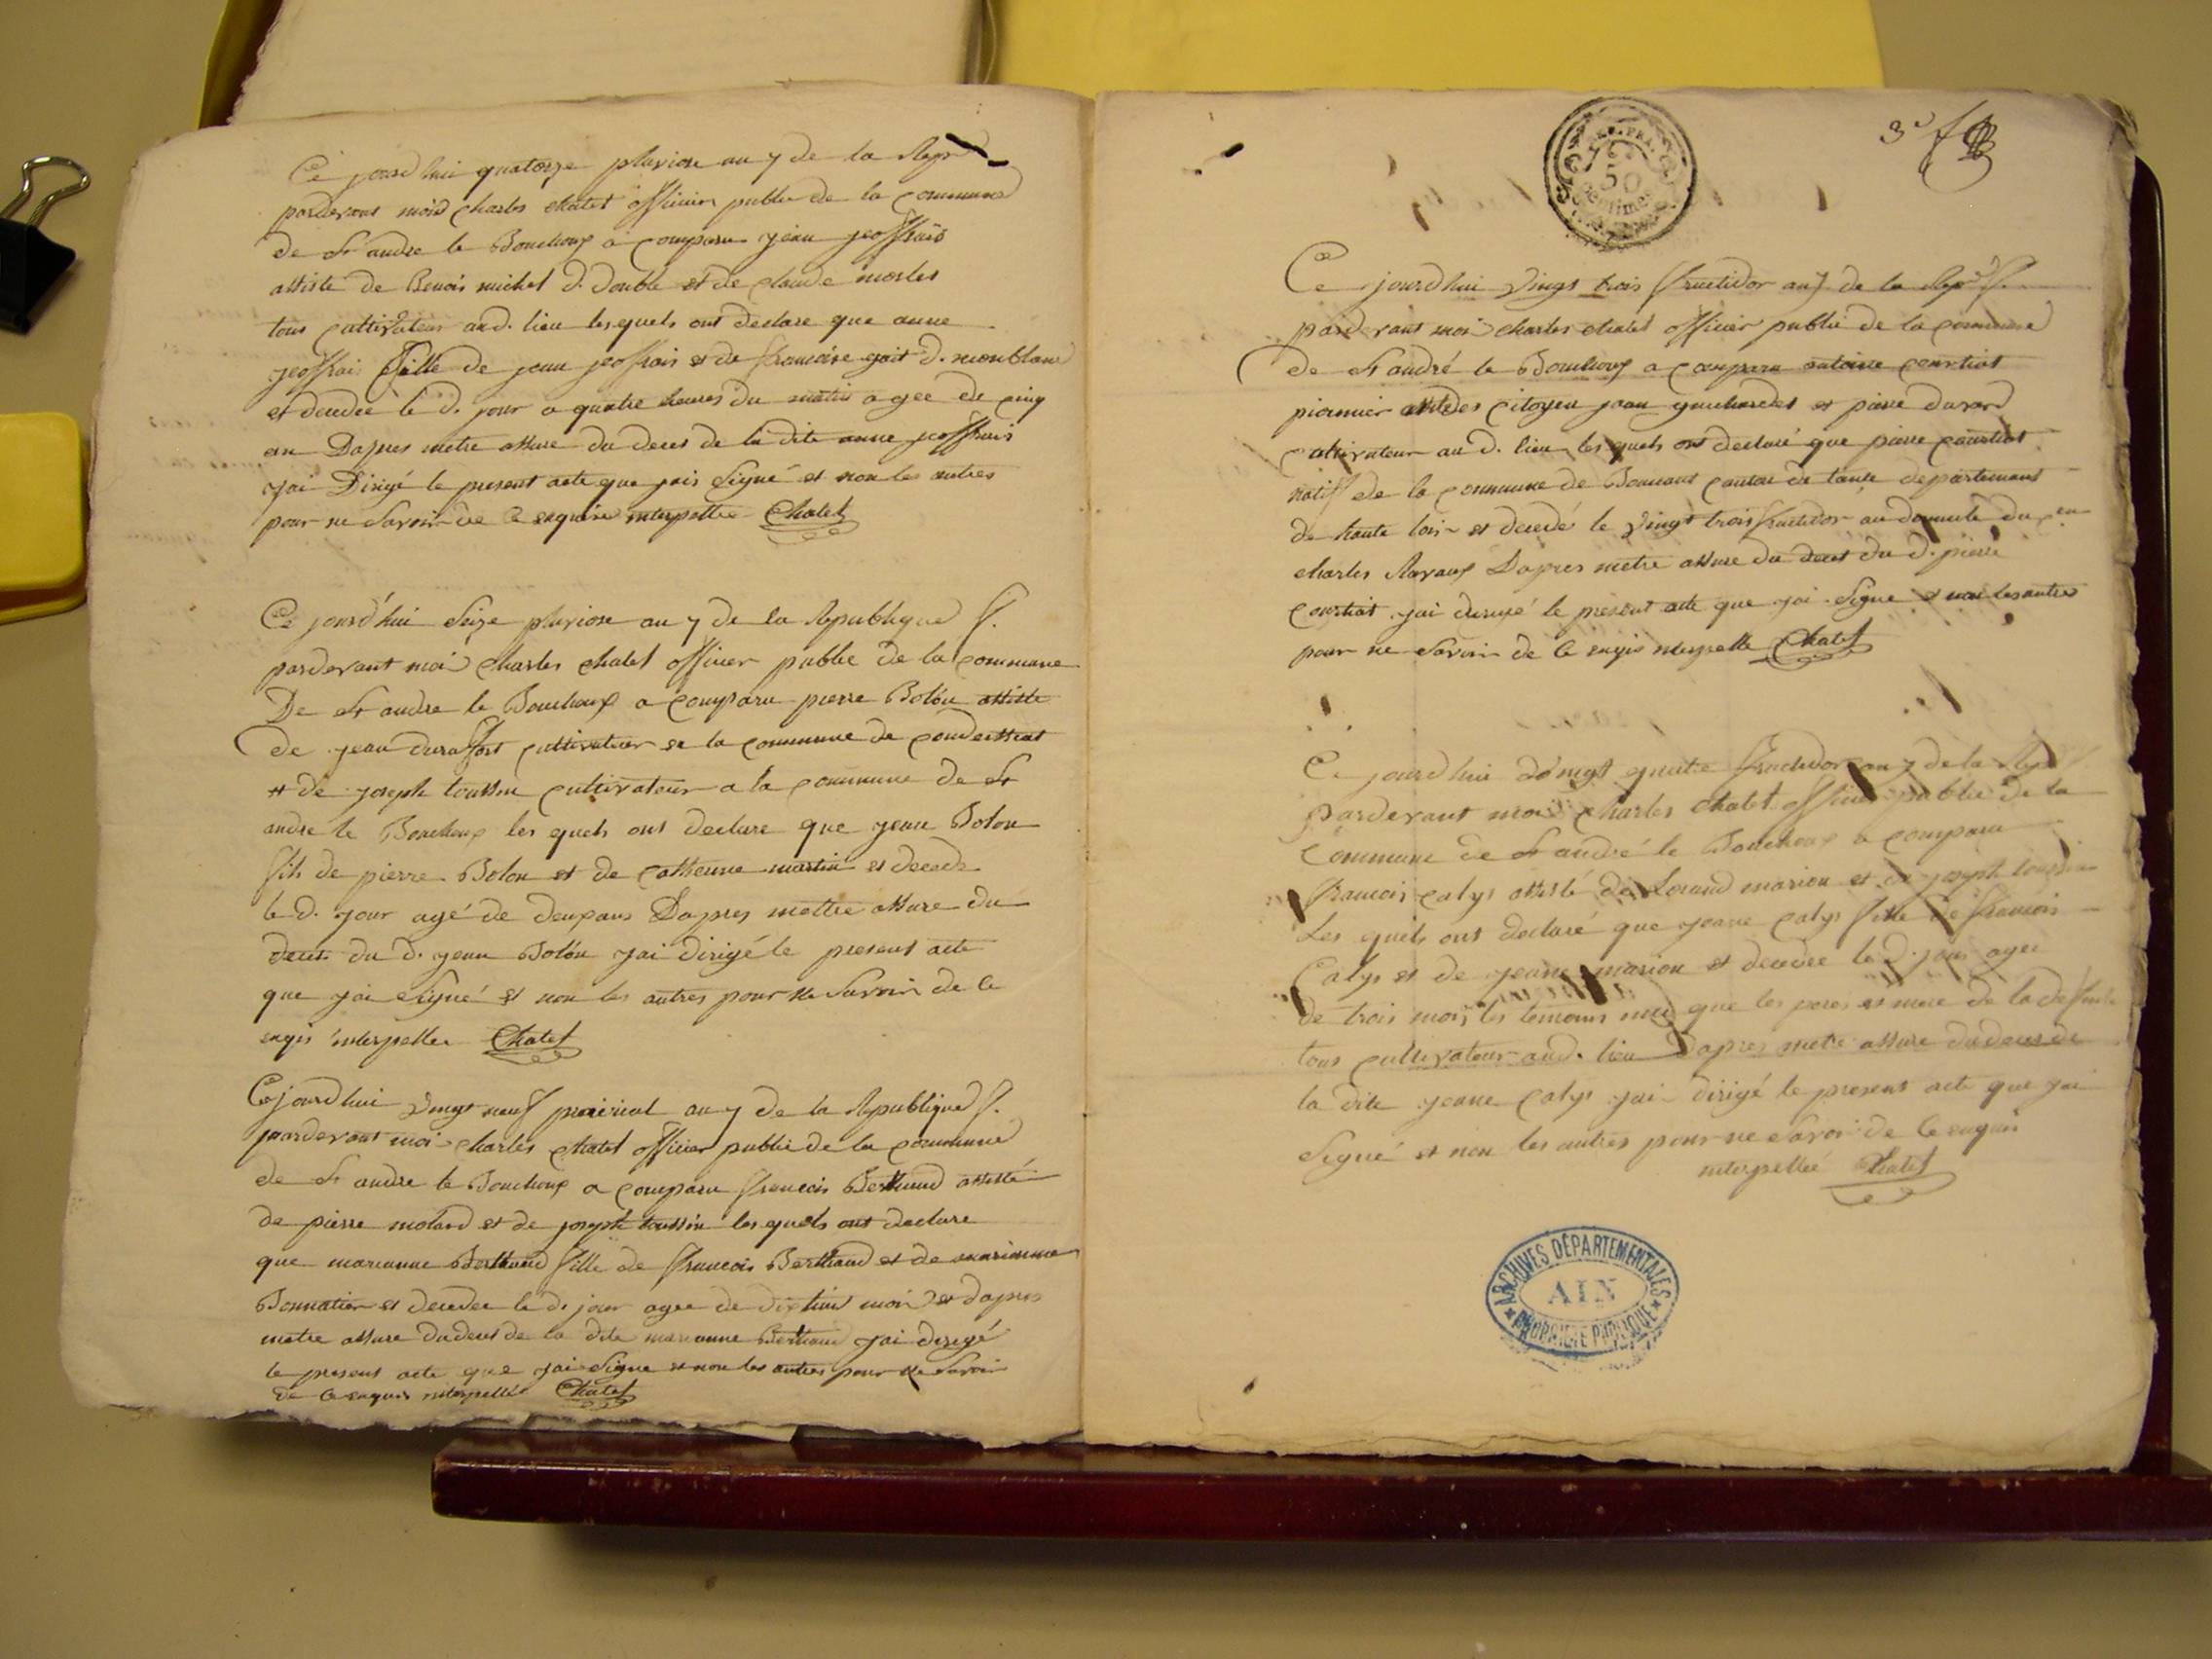 Ce jourdhui quatorze pluviose an 7 de la Rep
pardevant moi charles chatel officier public de la commune
de St andre le Bouchoux a comparu jean jeoffrais
assiste de Benois michel d. double et de claude morlet
tous cultivateurs aud. lieu lesquels ont declare que anne
jeoffrais fille de jean jeoffrais et de francoise goit d. monblanc
et decedée le d. jour a quatre heures du matin agée de cinq
an Dapres metre assure du deces de la dite anne jeoffrais
jai Dirigé le present acte que jais signé et non les autres
pour ne savoir de ce enquire interpellee Chatel
Ce jourd'hui seize pluviose an 7 de la Republique f.
pardevant moi charles chatel officier public de la commune
De St andre le Bouchoux a comparu pierre Bolon assiste
de jean duraffort cultivateur de la commune de condeissiat
et de joseph toussin cultivateur a la commune de St
andre le Bouchoux les quels ont declare que jean Bolon
fils de pierre Bolon et de catherine martin et decede
le d. jour agé de deux ans Dapres mettre assure du
deces du d. jean Bolon jai dirigé le present acte
que jai signé et non les autres pour ne savoir de ce
enqis interpellee Chatel
Ce jourdhui vingt neuf prairial an 7 de la Republique f.
pardevant moi charles chatel officier public de la commune
de St andre le Bouchoux a comparu francois Berthaud assisté
de pierre molard et de joseph toussin lesquels ont declare
que marianne Berthaud fille de francois Berthaud et de marianne
Bonnatier et decedee le d. jour agee de dix huit mois et dapres
metre assure du deces de la dite marianne Berthaud jai dirigé
le present acte que jai signe et non les autres pour ne savoir
de ce enquis interpellée Chatel
3e f
REP. FRA.
50
centimes
Ce jourdhui vingt trois fructidor an 7 de la Rep f.
pardevant moi charles chatel officier public de la commune
de St andré le Bouchoux a comparu antoine courtiat
pionnier des citoyen jean et pierre durard
cultivateur au d. lieu les quels ont declaré que pierre courtiat
natif de la commune de canton de departement
de haute loir et decedé le vingt trois fructidor au domicile du cen
charles Ravaux Dapres metre assure du deces du d. pierre
courtiat jai dirigé le present acte que jai signe et non les autres
pour ne savoir de ce enqis interpelle Chatel
Ce jourdhui vingt quatre fructidor an 7 de la Rep
Pardevant moi charles chatel officier public de la
commune de St andré le Bouchoux a comparu
francois calys assisté de marion et de joseph toussin
Les quels ont declaré que jeanne calys fille de francois
Calys et de jeanne marion et decedee le d. jour agee
de trois mois les temoins que les peres et mere de la
tous cultivateur aud. lieu Dapres metre assure du deces de
la dite jeanne calys jai dirigé le present acte que jai
signé et non les autres pour ne savoir de ce enquis
interpellee Chatel
ARCHIVES DÉPARTEMENTALES
AIN
PROPRIÉTÉ PUBLIQUE